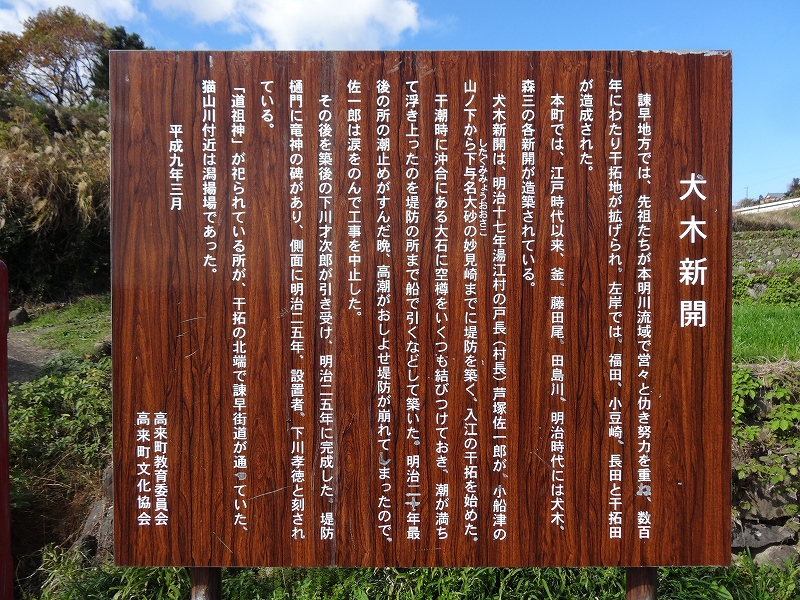 犬木新開
諫早地方では、先祖たちが本明川流域で営々と仂き努力を重ね、数百
年にわたり干拓地が拡げられ。左岸では。福田、小豆崎、長田と干拓田
が造成された。
本町では、江戸時代以来、釜。藤田尾。田島川、明治時代には犬木、
森三の各新開が造築されている。
犬木新開は、明治十七年湯江村の戸長(村長)芦塚佐一郎が、小船津の
したくみみょうおおさこ
山ノ下から下与名大砂の妙見崎までに堤防を築く、入江の干拓を始めた。
干潮時に沖合にある大石に空樽をいくつも結びつけておき、潮が満ち
て浮き上ったのを堤防の所まで船で引くなどして築いた。明治二十年最
後の所の潮止めがすんだ晩、高潮がおしよせ堤防が崩れてしまったので。
佐一郎は涙をのんで工事を中止した。
その後を築後の下川才次郎が引き受け、明治二五年に完成した。堤防
樋門に竜神の碑があり、側面に明治二五年、設置者、下川孝徳と刻され
ている。
「道祖神」が祀られている所が、干拓の北端で諫早街道が通っていた、
猫山川付近は潟揚場であった。
平成九年三月
高来町教育委員会
高来町文化協会